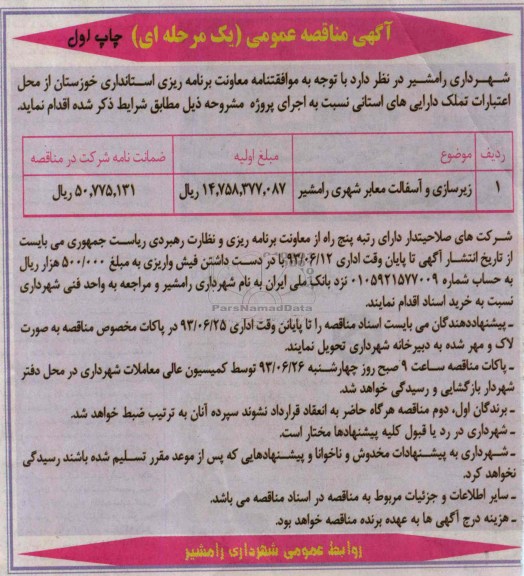 آگهی مناقصه عمومی (یک مرحله ای) چاپ اول
شهرداری رامشیر در نظر دارد با توجه به موافقتنامه معاونت برنامه ریزی استانداری خوزستان از محل
اعتبارات تملک دارایی های استانی نسبت به اجرای پروژه مشروحه ذیل مطابق شرایط ذکر شده اقدام نماید.
ردیف موضوع مبلغ اولیه ضمانت نامه شرکت در مناقصه
۱ زیرسازی و آسفالت معابر شهری رامشیر ۱۴,۷۵۸,۳۷۷,۰۸۷ ریال ۵۰,۷۷۵,۱۳۱ ریال
شرکت های صلاحیتدار دارای رتبه پنج راه از معاونت برنامه ریزی و نظارت رهبردی ریاست جمهوری می بایست
از تاریخ انتشار آگهی تا پایان وقت اداری ۹۳/۰۶/۱۲ با در دست داشتن فیش واریزی به مبلغ ۵۰۰/۰۰۰ هزار ریال
به حساب شماره ۰۱۰۵۹۲۱۵۷۷۰۰۹ نزد بانک ملی ایران به نام شهرداری رامشیر و مراجعه به واحد فنی شهرداری
نسبت به خرید اسناد اقدام نمایند.
ParsNamadData
ـ پیشنهاددهندگان می بایست اسناد مناقصه را تا پایانن وقت اداری ۹۳/۰۶/۲۵ در پاکات مخصوص مناقصه به صورت
لاک و مهر شده به دبیرخانه شهرداری تحویل نمایند.
ـ پاکات مناقصه ساعت ۹ صبح روز چهارشنبه ۹۳/۰۶/۲۶ توسط کمیسیون عالی معاملات شهرداری در محل دفتر
شهردار بازگشایی و رسیدگی خواهد شد.
ـ برندگان اول، دوم مناقصه هرگاه حاضر به انعقاد قرارداد نشوند سپرده آنان به ترتیب ضبط خواهد شد.
ـ شهرداری در رد یا قبول کلیه پیشنهادها مختار است.
ـ شهرداری به پیشنهادات مخدوش و ناخوانا و پیشنهادهایی که پس از موعد مقرر تسلیم شده باشند رسیدگی
نخواهد کرد.
ـ سایر اطلاعات و جزئیات مربوط به مناقصه در اسناد مناقصه می باشد.
ـ هزینه درج آگهی ها به عهده برنده مناقصه خواهد بود.
روابط عمومی شهرداری رامشیر